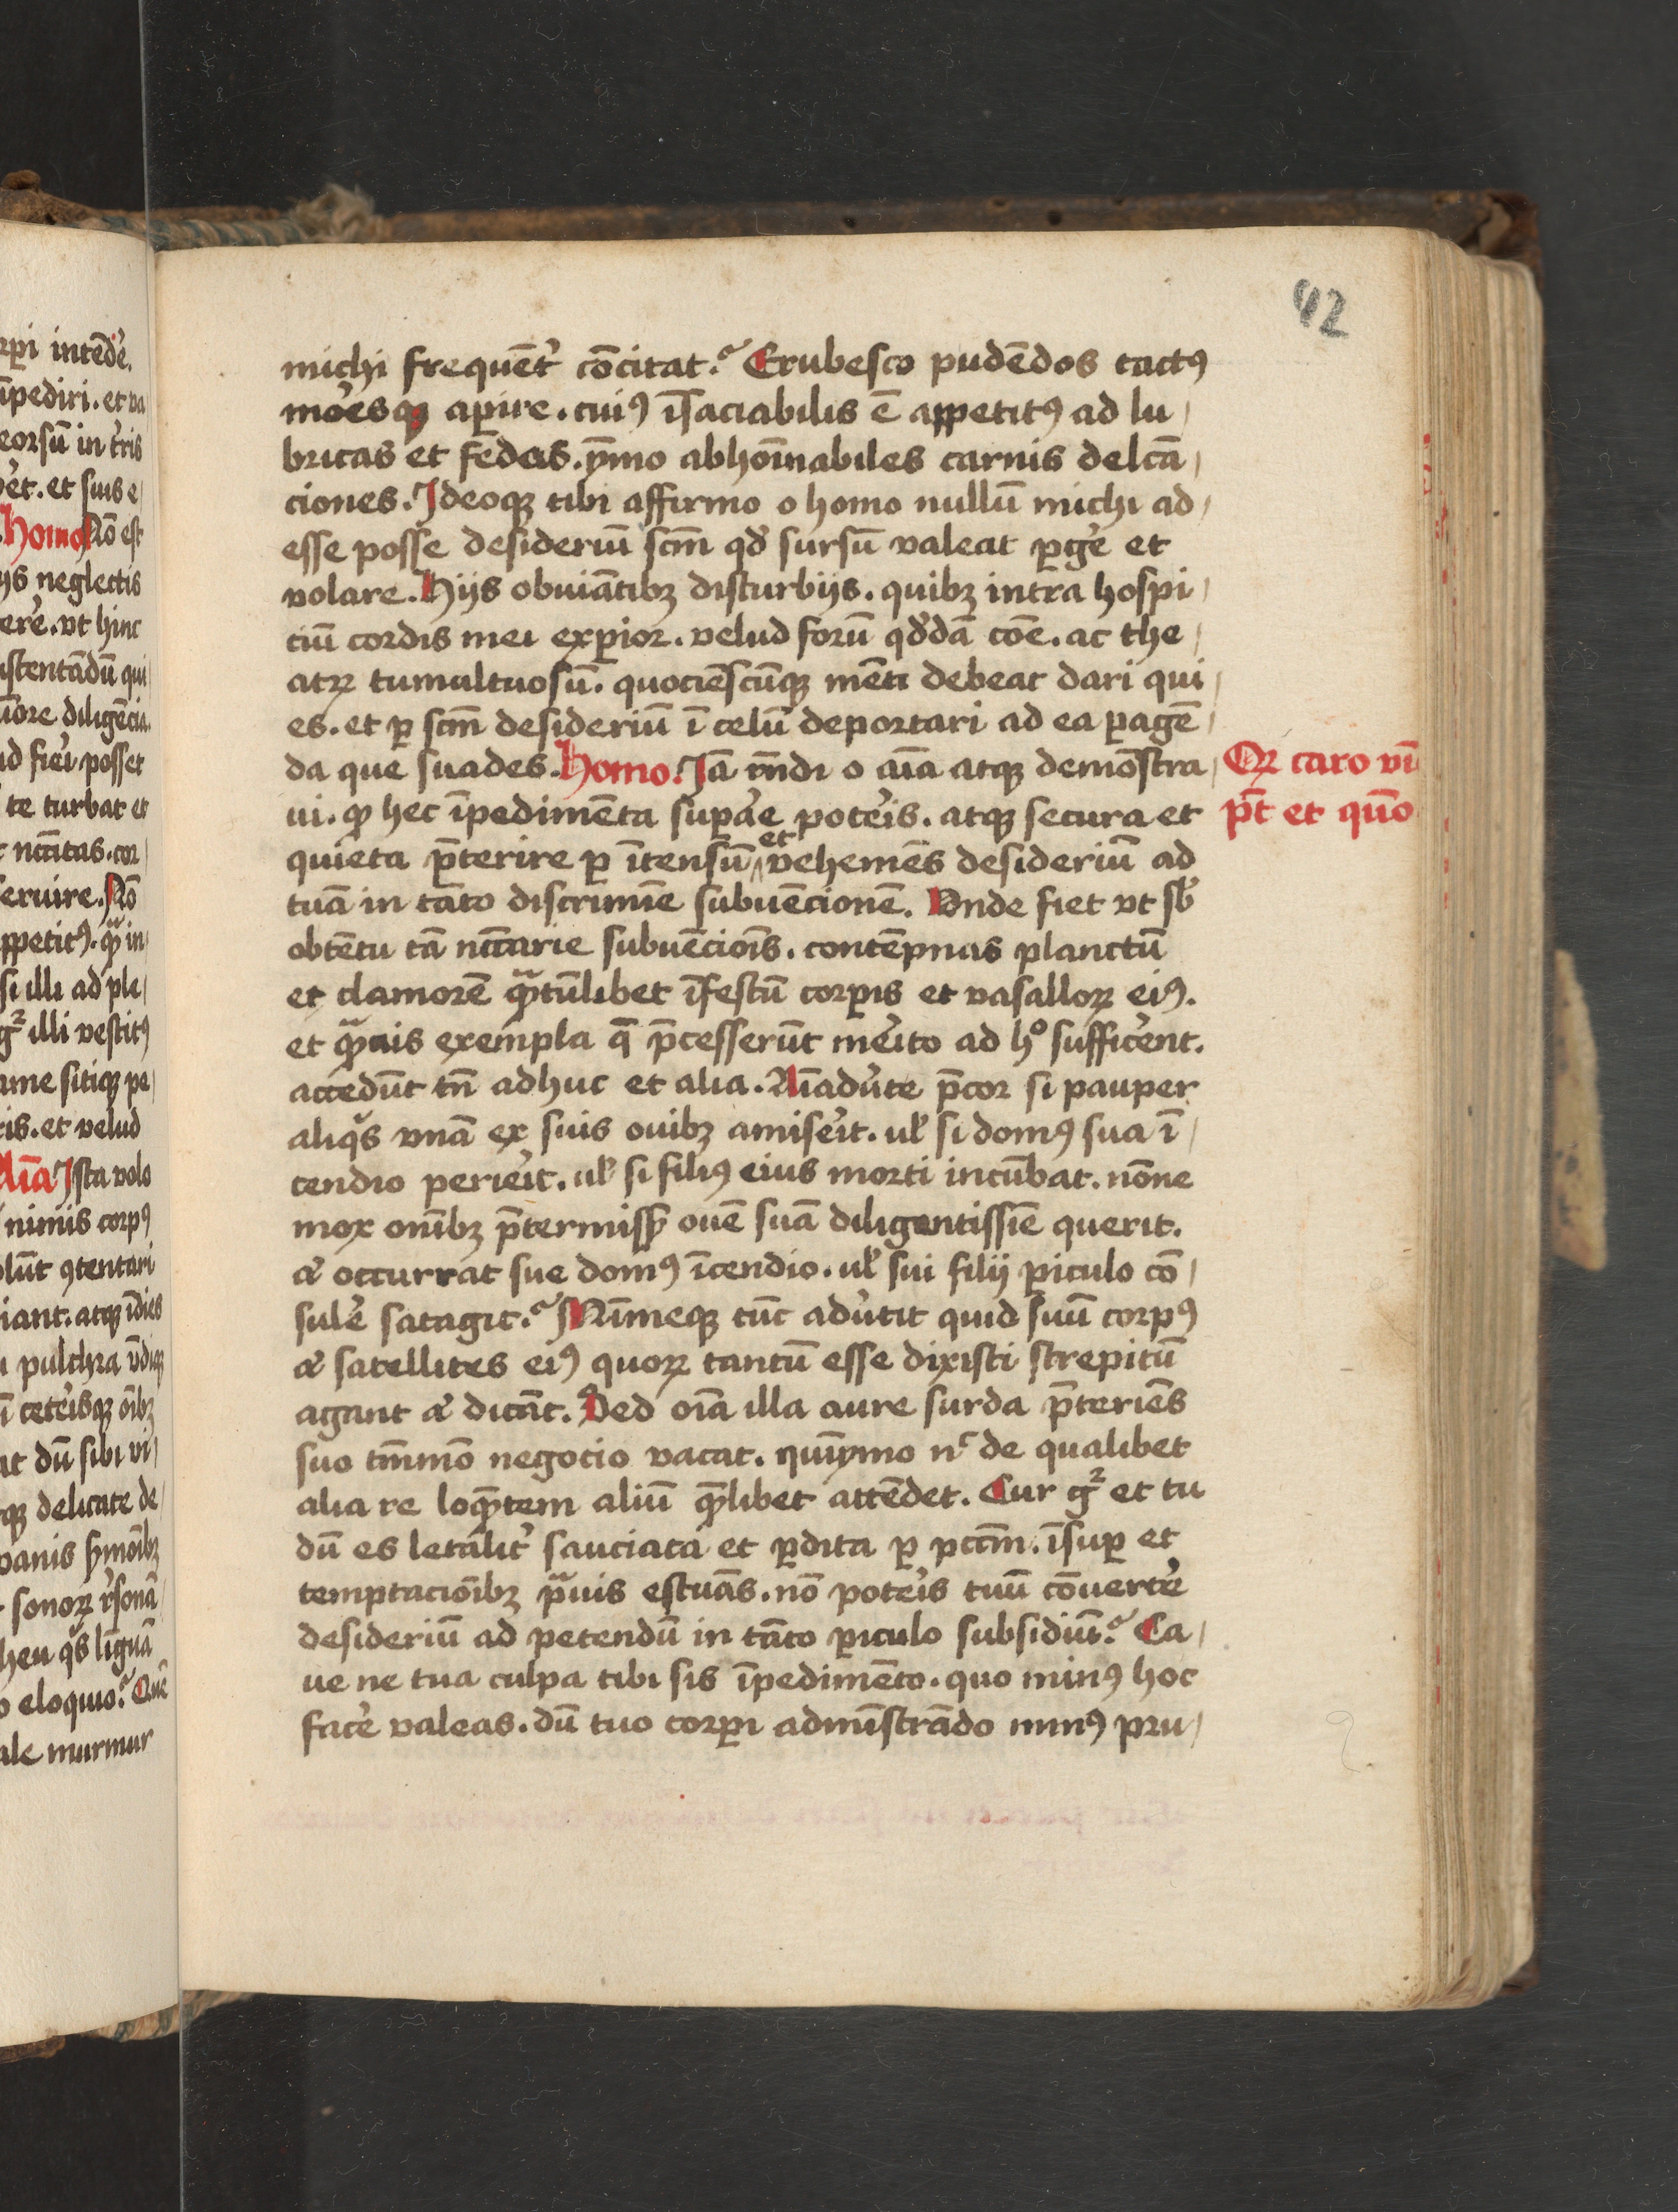 42
michi frequēt᷑ cōcitat.᷑ Erubesco pudēdos tactꝰ
mo᷑esqꝫ aꝑire. cuiꝰ ī̄saciabilis ē appetitꝰ ad lu /
bricas et fedas. ẏmo abhoīnabiles carnis delcā /
ciones. Ideoqꝫ tibi affirmo o homo nullū michi ad /
esse posse desideriū scm̄ qd̕ sursū valeat ꝑge᷑ et
volare. Hijs obuiātibꝫ disturbijs. quibꝫ intra hospi /
ciū cordis mei exꝑior. velud forū qd̕dā cōe. ac the /
atꝝ tumultuosū. quociēscūqꝫ mēti debeat dari qui /
es. et ꝑ scm̄ desideriū ī celū deportari ad ea ꝑagē /
da que suades. Homo. Iā rn̄di o aīa atqꝫ demōstra /
ui. ꝙ hec īpedimēta suꝑa᷑e pote᷑is. atqꝫ secura et
quieta p̄terire ꝑ ītensū et vehemēs desideriū ad
tuā in tāto discrimīe subuēcionē. Vnde fiet vt sb᷑
obtētu tā nc̄cārie subuēciōis. contēpnas planctū
et clamorē qᷓtūlibet īfestū corꝑis et vasalloꝝ eiꝰ.
et qᷓuis exempla q̄ p̄cesserūt me᷑ito ad hͦ suffice᷑nt.
accedūt tn̄ adhuc et alia. Aīadu᷑te p̄cor si pauper
aliqͥs vnā ex suis ouibꝫ amise᷑it. ul̕ si domꝰ sua ī /
cendio perie᷑it. ul̕ si filiꝰ eius morti incūbat. nōne
mox omībꝫ p̄termissꝭ ouē suā diligentissīe querit.
⁊ occurrat sue domꝰ īcendio. ul̕ sui filij ꝑiculo cō /
sule᷑ satagit.᷑ Nūneqꝫ tūc adu᷑tit quid suū corpꝰ
⁊ satellites eiꝰ quoꝝ tantū esse dixisti strepitū
agant ⁊ dicāt. Sed oīa illa aure surda p̄teriēs
suo tm̄mō negocio vacat. quīẏmo nͨ de qualibet
alia re loqᷓtem aliū qᷓlibet attēdet. Cur gͦ et tu
dū es letalit᷑ sauciata et ꝑdita ꝑ pccm̄. īsuꝑ et
temptacioībꝫ pᷓuis estuās. nō pote᷑is tuū cōuerte᷑
desideriū ad petendū in tāto ꝑiculo subsidiū.᷑ Ca /
ue ne tua culpa tibi sis īpedimēto. quo minꝰ hoc
face᷑ valeas. dū tuo corꝑi admīstrādo minꝰ pru /
Qꝝ caro vī
p̄t et quō